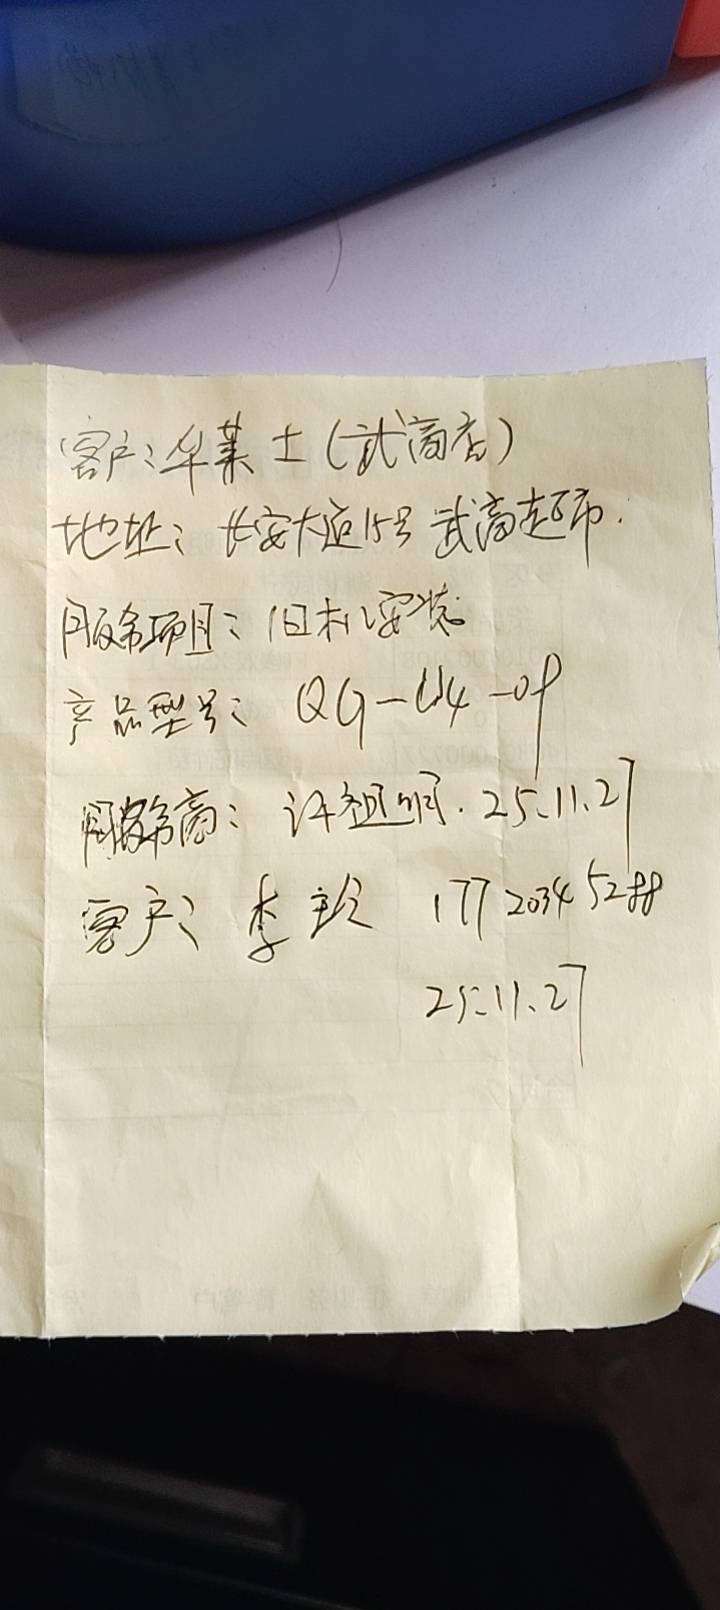 客户：华莱士（武商店）
地址：长安大道15号 武商超市.
服务项目：旧机安装
产品型号： QG-U4-09
服务商： 许祖明. 25.11.27
客户： 李玲 177 2034 5288
25.11.27